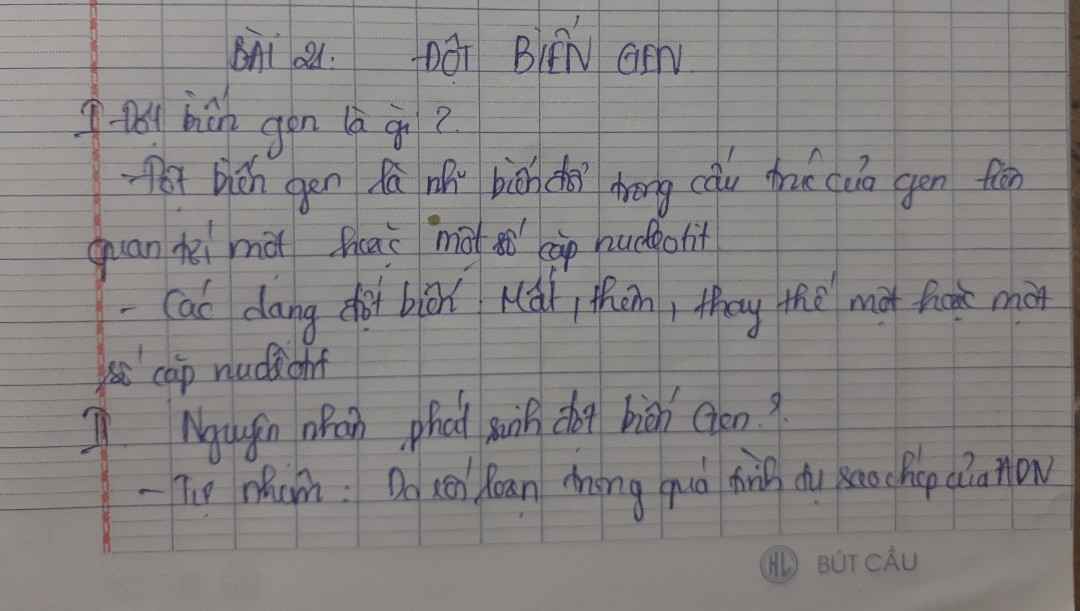 BÀI 21: ĐỘT BIẾN GEN
I Đột biến gen là gì ?
- Đột biến gen là nh~ biến đổi trong cấu trúc của gen liên
quan tới một hoặc một số cặp nucleotit
- Các dạng đột biến: Mất, thêm, thay thế một hoặc một
số cặp nuclêôtit
II Nguyên nhân phát sinh đột biến Gen ?
- Tự nhiên : Do rối loạn trong quá trình tự sao chép của ADN
HL BÚT CẦU